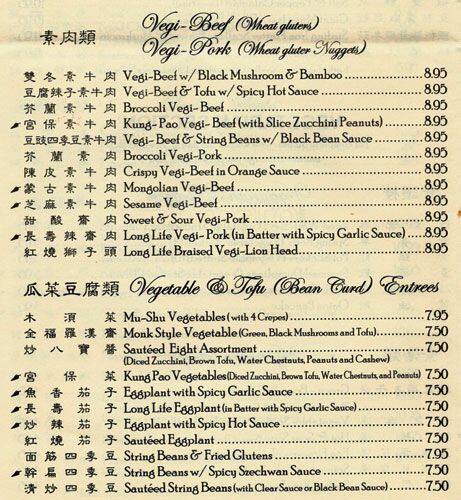 素肉類 Vegi-Beef (Wheat gluters)
Vegi-Pork (Wheat gluter Nuggets)
雙冬素牛肉 Vegi-Beef w/ Black Mushroom & Bamboo 8.95
豆腐辣子素牛肉 Vegi-Beef & Tofu w/ Spicy Hot Sauce 8.95
芥蘭素牛肉 Broccoli Vegi-Beef 8.95
宮保素牛肉 Kung-Pao Vegi-Beef (with Slice Zucchini Peanuts) 8.95
豆豉四季豆素牛肉 Vegi-Beef & String Beans w/ Black Bean Sauce 8.95
芥蘭素肉 Broccoli Vegi-Pork 8.95
陳皮素牛肉 Crispy Vegi-Beef in Orange Sauce 8.95
蒙古素牛肉 Mongolian Vegi-Beef 8.95
芝麻素牛肉 Sesame Vegi-Beef 8.95
甜酸齋肉 Sweet & Sour Vegi-Pork 8.95
長壽辣齋肉 Long Life Vegi-Pork (in Batter with Spicy Garlic Sauce) 8.95
紅燒獅子頭 Long Life Braised Vegi-Lion Head 8.95
瓜菜豆腐類 Vegetable & Tofu (Bean Curd) Entrees
木須菜 Mu-Shu Vegetables (with 4 Crepes) 7.95
全福羅漢齋 Monk Style Vegetable (Green, Black Mushrooms and Tofu) 7.50
炒八寶醬 Sautéed Eight Assortment 7.50
(Diced Zucchini, Brown Tofu, Water Chestnuts, Peanuts and Cashew)
宮保菜 Kung Pao Vegetables (Diced Zucchini, Brown Tofu, Water Chestnuts, and Peanuts) 7.50
魚香茄子 Eggplant with Spicy Garlic Sauce 7.50
長壽茄子 Long Life Eggplant (in Batter with Spicy Garlic Sauce) 7.50
炒辣茄子 Eggplant with Spicy Hot Sauce 7.50
紅燒茄子 Sautéed Eggplant 7.50
面筋四季豆 String Beans & Fried Glutens 7.95
幹扁四季豆 String Beans w/ Spicy Szechwan Sauce 7.50
清炒四季豆 Sautéed String Beans (with Clear Sauce or Black Bean Sauce) 7.50